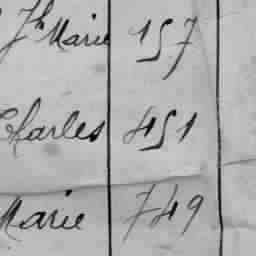 Jh Marie 157
Charles 451
Marie 749